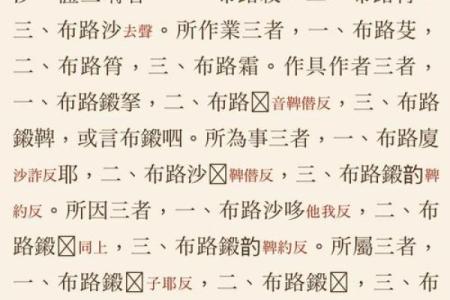 三、布路沙去聲。所作業三者,一、布路芟,
二、布路筲,三、布路霜。作具作者三者,
一、布路鎩拏,二、布路音鞞僭反,三、布路
鎩鞞,或言布鎩呬。所為事三者,一、布路廈
沙詐反耶,二、布路沙鞞僭反,三、布路鎩韵鞞
約反。所因三者,一、布路沙哆他我反,二、布
路鎩同上,三、布路鎩韵鞞約反。所屬三者,
一、布路鎩子耶反,二、布路鎩,三、布